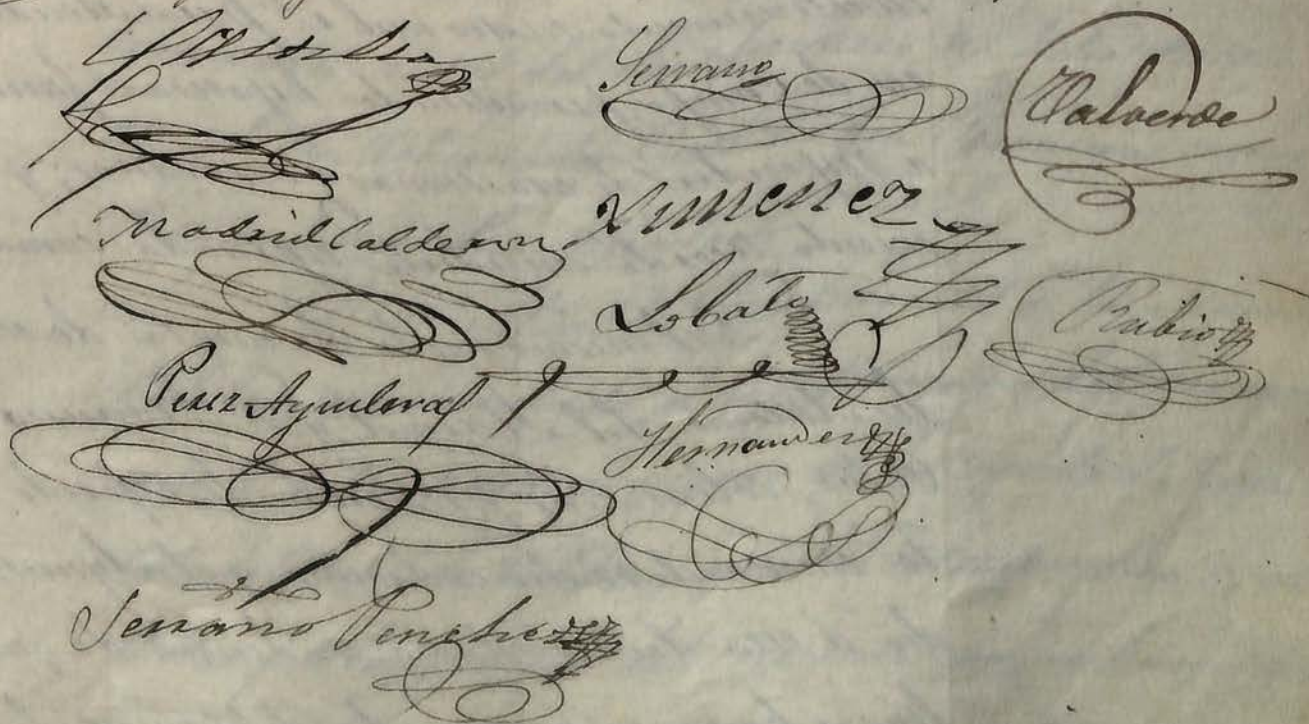 Serrano
Valverde
Madrid Calderon
Ximenez
Lobato
Rubio
Perez Aguilera
Hernandez
Serrano